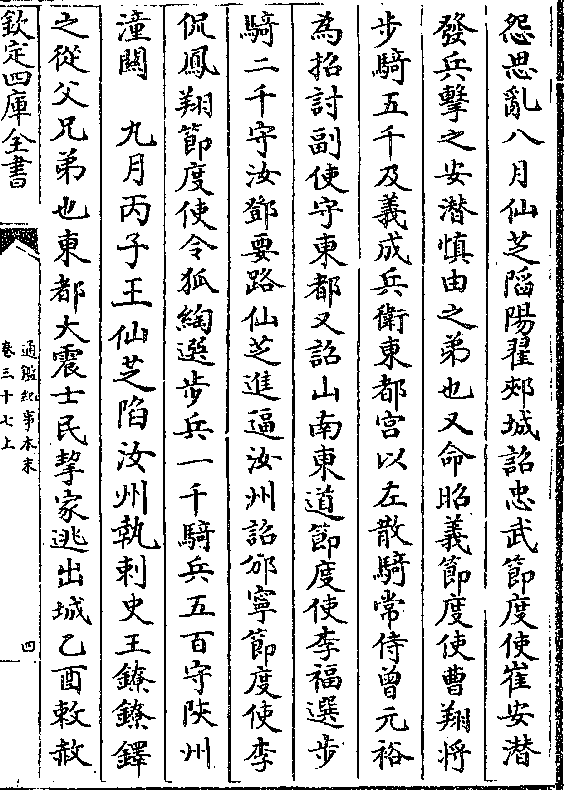 怨思亂八月仙芝䧟陽翟郟城詔忠武節度使崔安潜
發兵擊之安潜慎由之弟也又命昭義節度使曹翔將
步騎五千及義成兵衛東都宫以左散騎常侍曾元裕
為招討副使守東都又詔山南東道節度使李福選步
騎二千守汝鄧要路仙芝進逼汝州詔邠寧節度使李
侃鳳翔節度使令狐綯選步兵一千騎兵五百守陜州
潼闗　九月丙子王仙芝陷汝州執刺史王鐐鐐鐸
之從父兄弟也東都大震士民挈家逃出城乙酉敕赦
欽定四庫全書
通鑑紀事本末
卷三十七上
四